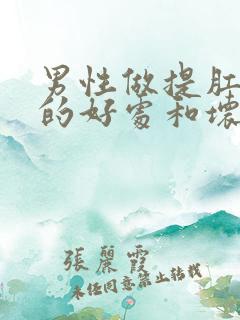 男性做提肛
的好處和壞
張麗霞
未任同意禁止转载